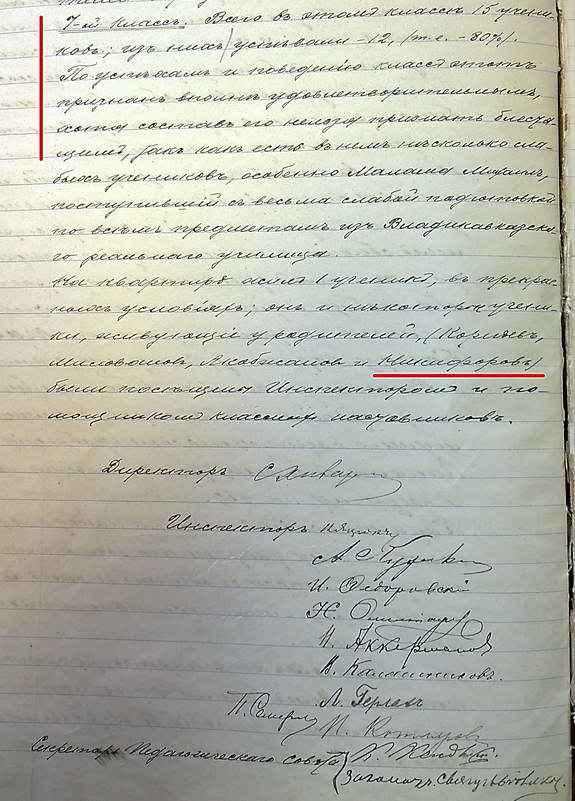 7-ой классъ. Всего въ этомъ классѣ 15 учени-
ковъ; изъ нихъ успѣвали -12, (т.е. -80%).
По успѣхамъ и поведенію классъ этотъ
признанъ вполнѣ удовлетворительнымъ,
хотя составъ его нельзя признать блестя-
щимъ, такъ какъ есть въ немъ нѣсколько сла-
быхъ учениковъ, особенно Маламa
поступившій съ весьма слабой подготовкой
по всѣмъ предметамъ изъ Владикавказска-
го реальнаго училища.
На квартирѣ жилъ 1 ученикъ, въ прекрас-
ныхъ условіяхъ; онъ и нѣкоторые учени-
ки, живущіе у родителей, (
и Никифоровъ)
были посѣщены Инспекторомъ и по-
мощникомъ классныхъ наставниковъ.
Директоръ С
Инспекторъ
А. С.
И. Ѳедоровскій
Н.
И. Аккермановъ
В. Калашниковъ
Л. Герлахъ
И. Котляровъ
Секретарь Педагогическаго Совѣта